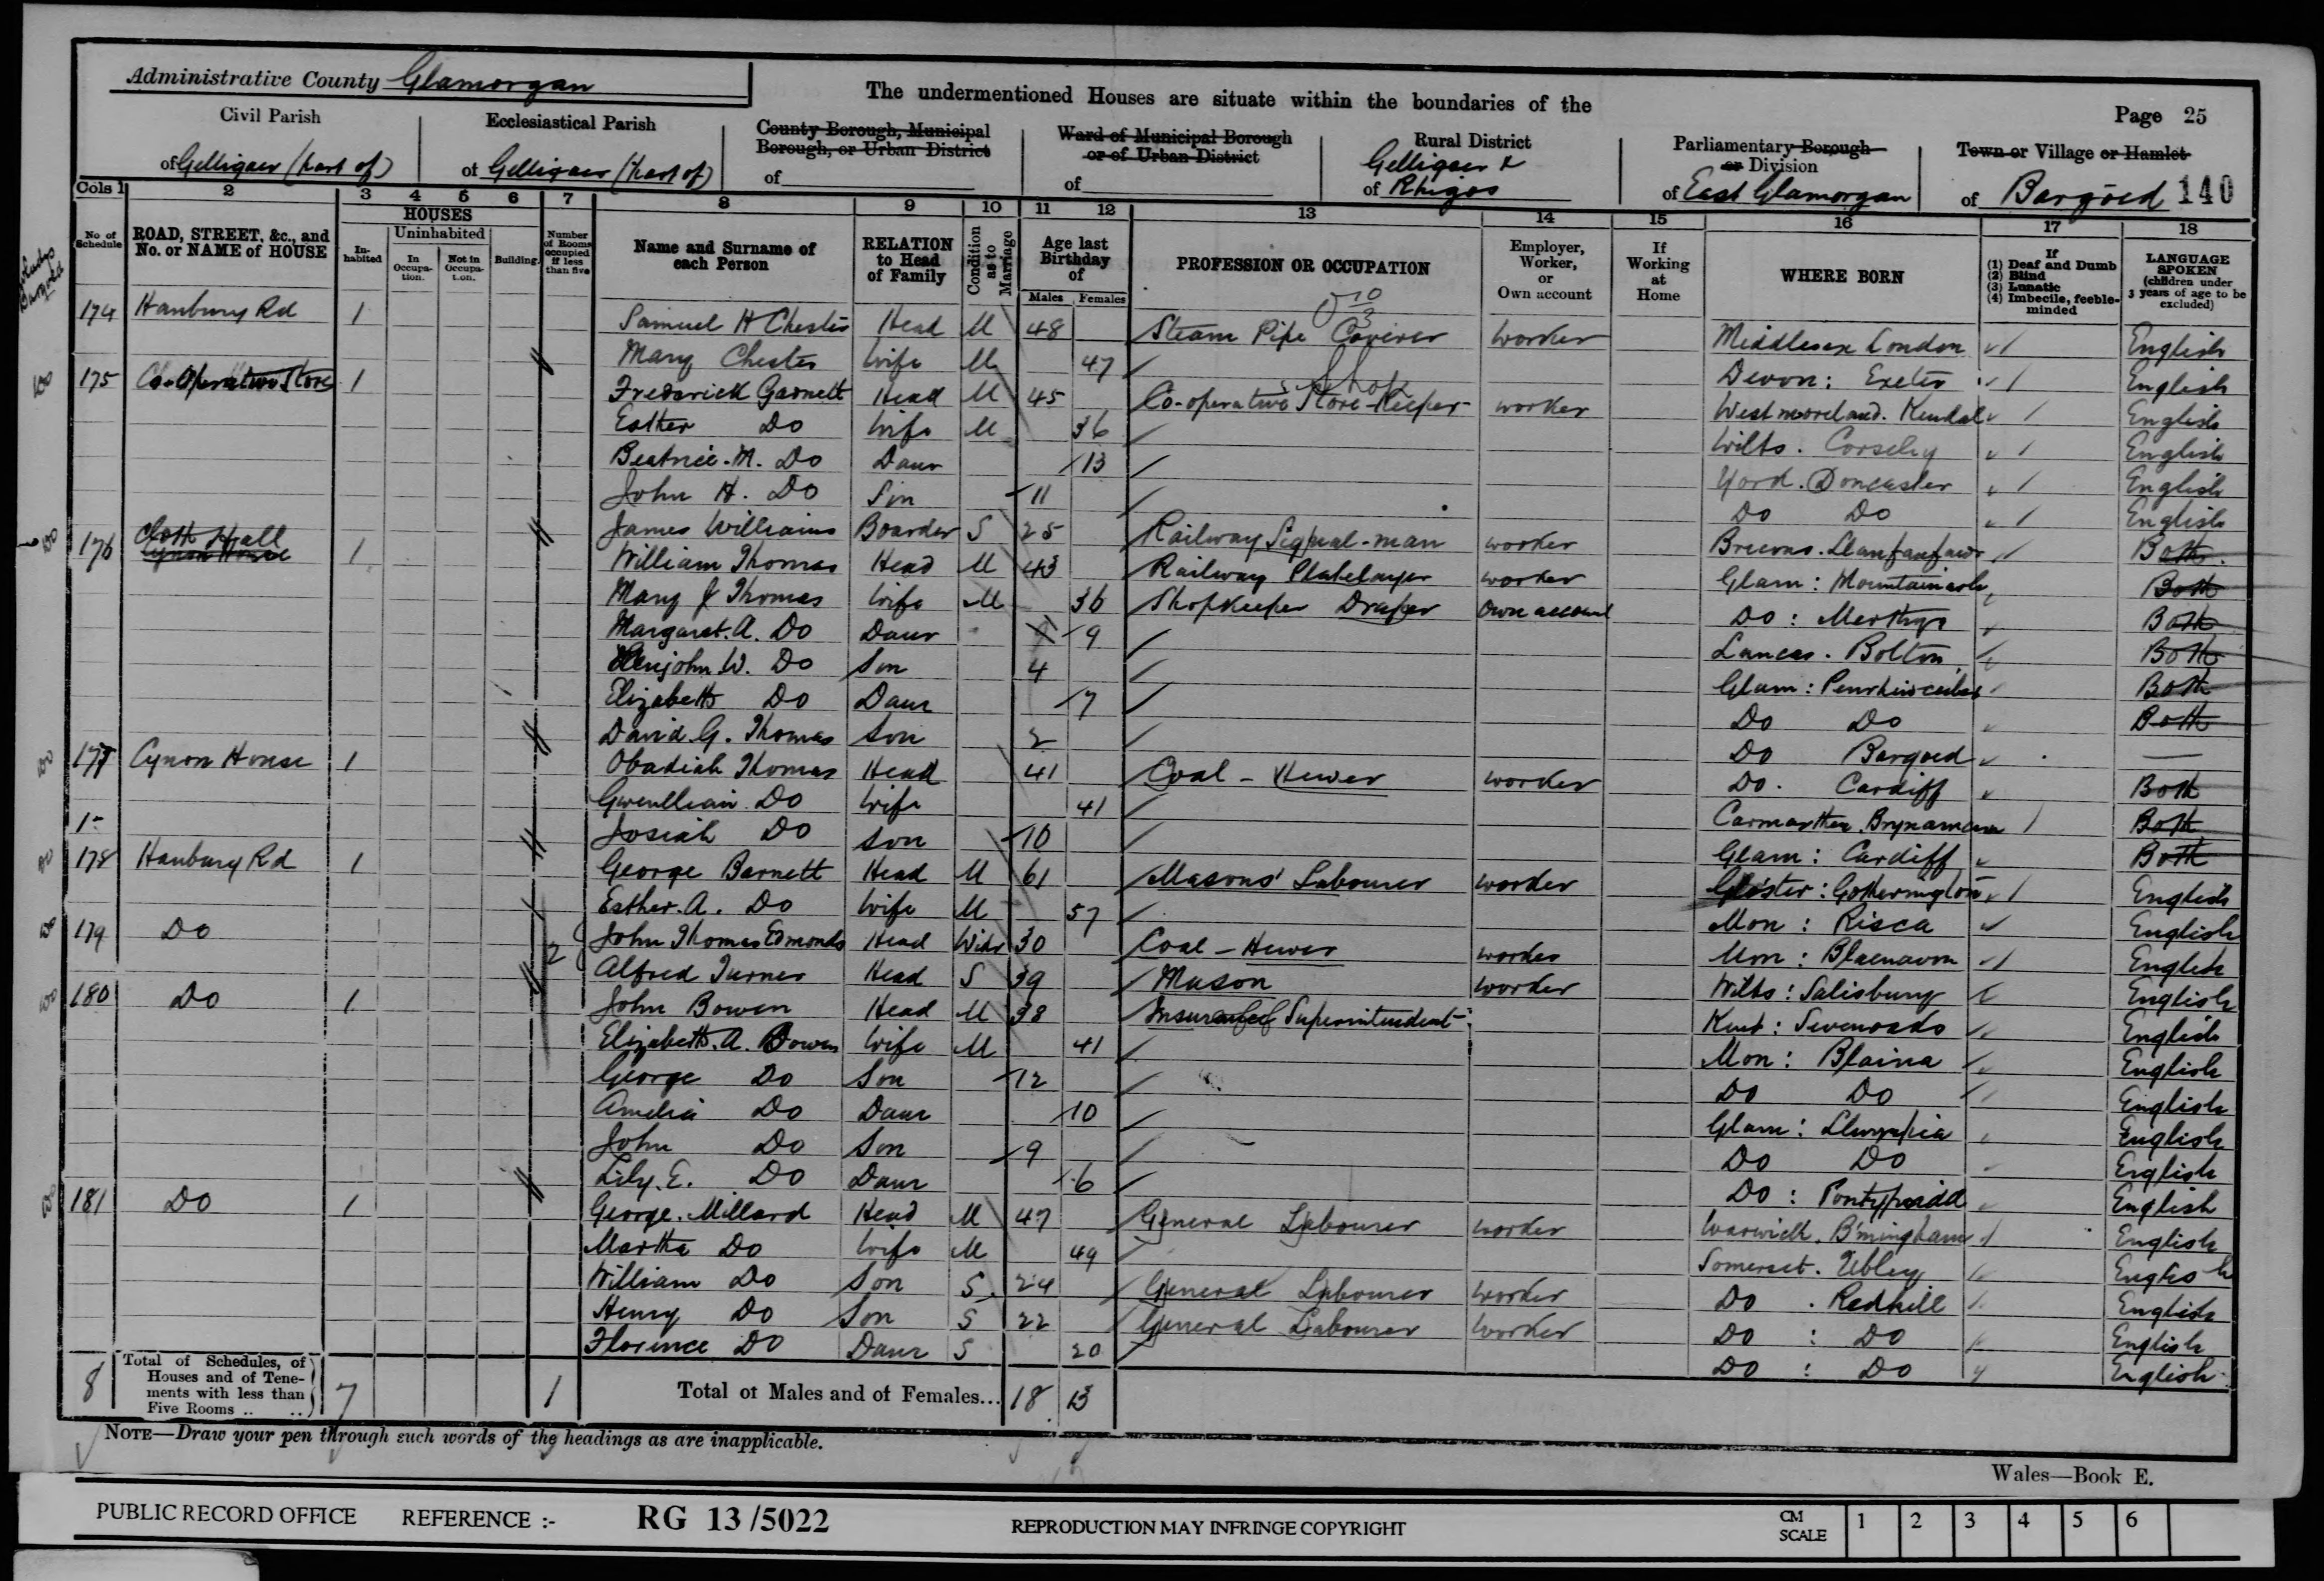 Administrative County Glamorgan
The undermentioned Houses are situate within the boundaries of the
Page 25
Civil Parish
of Gelligaer (part of)
Ecclesiastical Parish
of Gelligaer (part of)
County Borough, Municipal Borough, or Urban District
of
Ward of Municipal Borough or of Urban District
of
Rural District
Gelligaer &
of Rhigos
Parliamentary Borough or Division
of East Glamorgan
Town or Village or Hamlet
of Bargoed 140
Cols 1 2 3 4 5 6 7 8 9 10 11 12 13 14 15 16 17 18
No of Schedule
ROAD, STREET, &c., and No. or NAME of HOUSE
HOUSES
In-habited
Uninhabited
In Occupa-tion.
Not in Occupa-tion.
Building.
Number of Rooms occupied if less than five
Name and Surname of each Person
RELATION to Head of Family
Condition as to Marriage
Age last Birthday of
Males Females
PROFESSION OR OCCUPATION
Employer, Worker, or Own account
If Working at Home
WHERE BORN
If
(1) Deaf and Dumb
(2) Blind
(3) Lunatic
(4) Imbecile, feeble-minded
LANGUAGE SPOKEN
(children under 3 years of age to be excluded)
174 Hanbury Rd 1 Samuel H Chester Head M 48 Steam Pipe Coverer worker Middlesex London English
Mary Chester Wife M 47 Devon: Exeter English
175 Co-Operative Store 1 Frederick Garnett Head M 45 Co-operative Store-Keeper Shop worker Westmoreland. Kendal English
Esther Do Wife M 36 Wilts. Corseley English
Beatrice. M. Do Daur 13 York. Doncaster English
John H. Do Son 11 Do Do English
James Williams Boarder S 25 Railway Signal-man worker Both
176 Cloth Hall Cynon House 1 William Thomas Head M 43 Railway Platelayer worker Glam: Mountain ash Both
Mary J Thomas Wife M 36 Shopkeeper Draper Own account Do: Merthyr Both
Margaret. A. Do Daur 9 Lancas. Bolton Both
Benjohn. W. Do Son 4 Glam: Penrhiwceiber Both
Elizabeth Do Daur 7 Do Do Both
David. G. Thomas Son 2 Do Bargoed —
177 Cynon House 1 Obadiah Thomas Head 41 Coal-Hewer worker Do. Cardiff Both
Gwenllian Do Wife 41 Carmarthen. Brynamman Both
Josiah Do Son 10 Glam: Cardiff Both
178 Hanbury Rd 1 George Barnett Head M 61 Masons' Labourer worker Glo'ster: Gotherington English
Esther. A. Do Wife M 57 Mon: Risca English
179 Do 2 John Thomas Edmonds Head Widr 30 Coal-Hewer worker Mon: Blaenavon English
Alfred Turner Head S 39 Mason worker Wilts: Salisbury English
180 Do 1 John Bowen Head M 38 Insurance Superintendent Kent: Sevenoaks English
Elizabeth. A. Bowen Wife M 41 Mon: Blaina English
George Do Son 12 Do Do English
Amelia Do Daur 10 Glam: Llwynpia English
John Do Son 9 Do Do English
Lily. E. Do Daur 6 Do: Pontypridd English
181 Do 1 George. Millard Head M 47 General Labourer worker Warwick. B'mingham English
Martha Do Wife M 49 Somerset. Ubley English
William Do Son S 24 General Labourer worker Do. Redhill English
Henry Do Son S 22 General Labourer worker Do: Do English
Florence Do Daur S 20 Do: Do English
8 Total of Schedules, of Houses and of Tene-ments with less than Five Rooms .. .. 7 1 Total of Males and of Females... 18 13
NOTE—Draw your pen through such words of the headings as are inapplicable.
Wales—Book E.
PUBLIC RECORD OFFICE REFERENCE :- RG 13 /5022 REPRODUCTION MAY INFRINGE COPYRIGHT CM SCALE 1 2 3 4 5 6